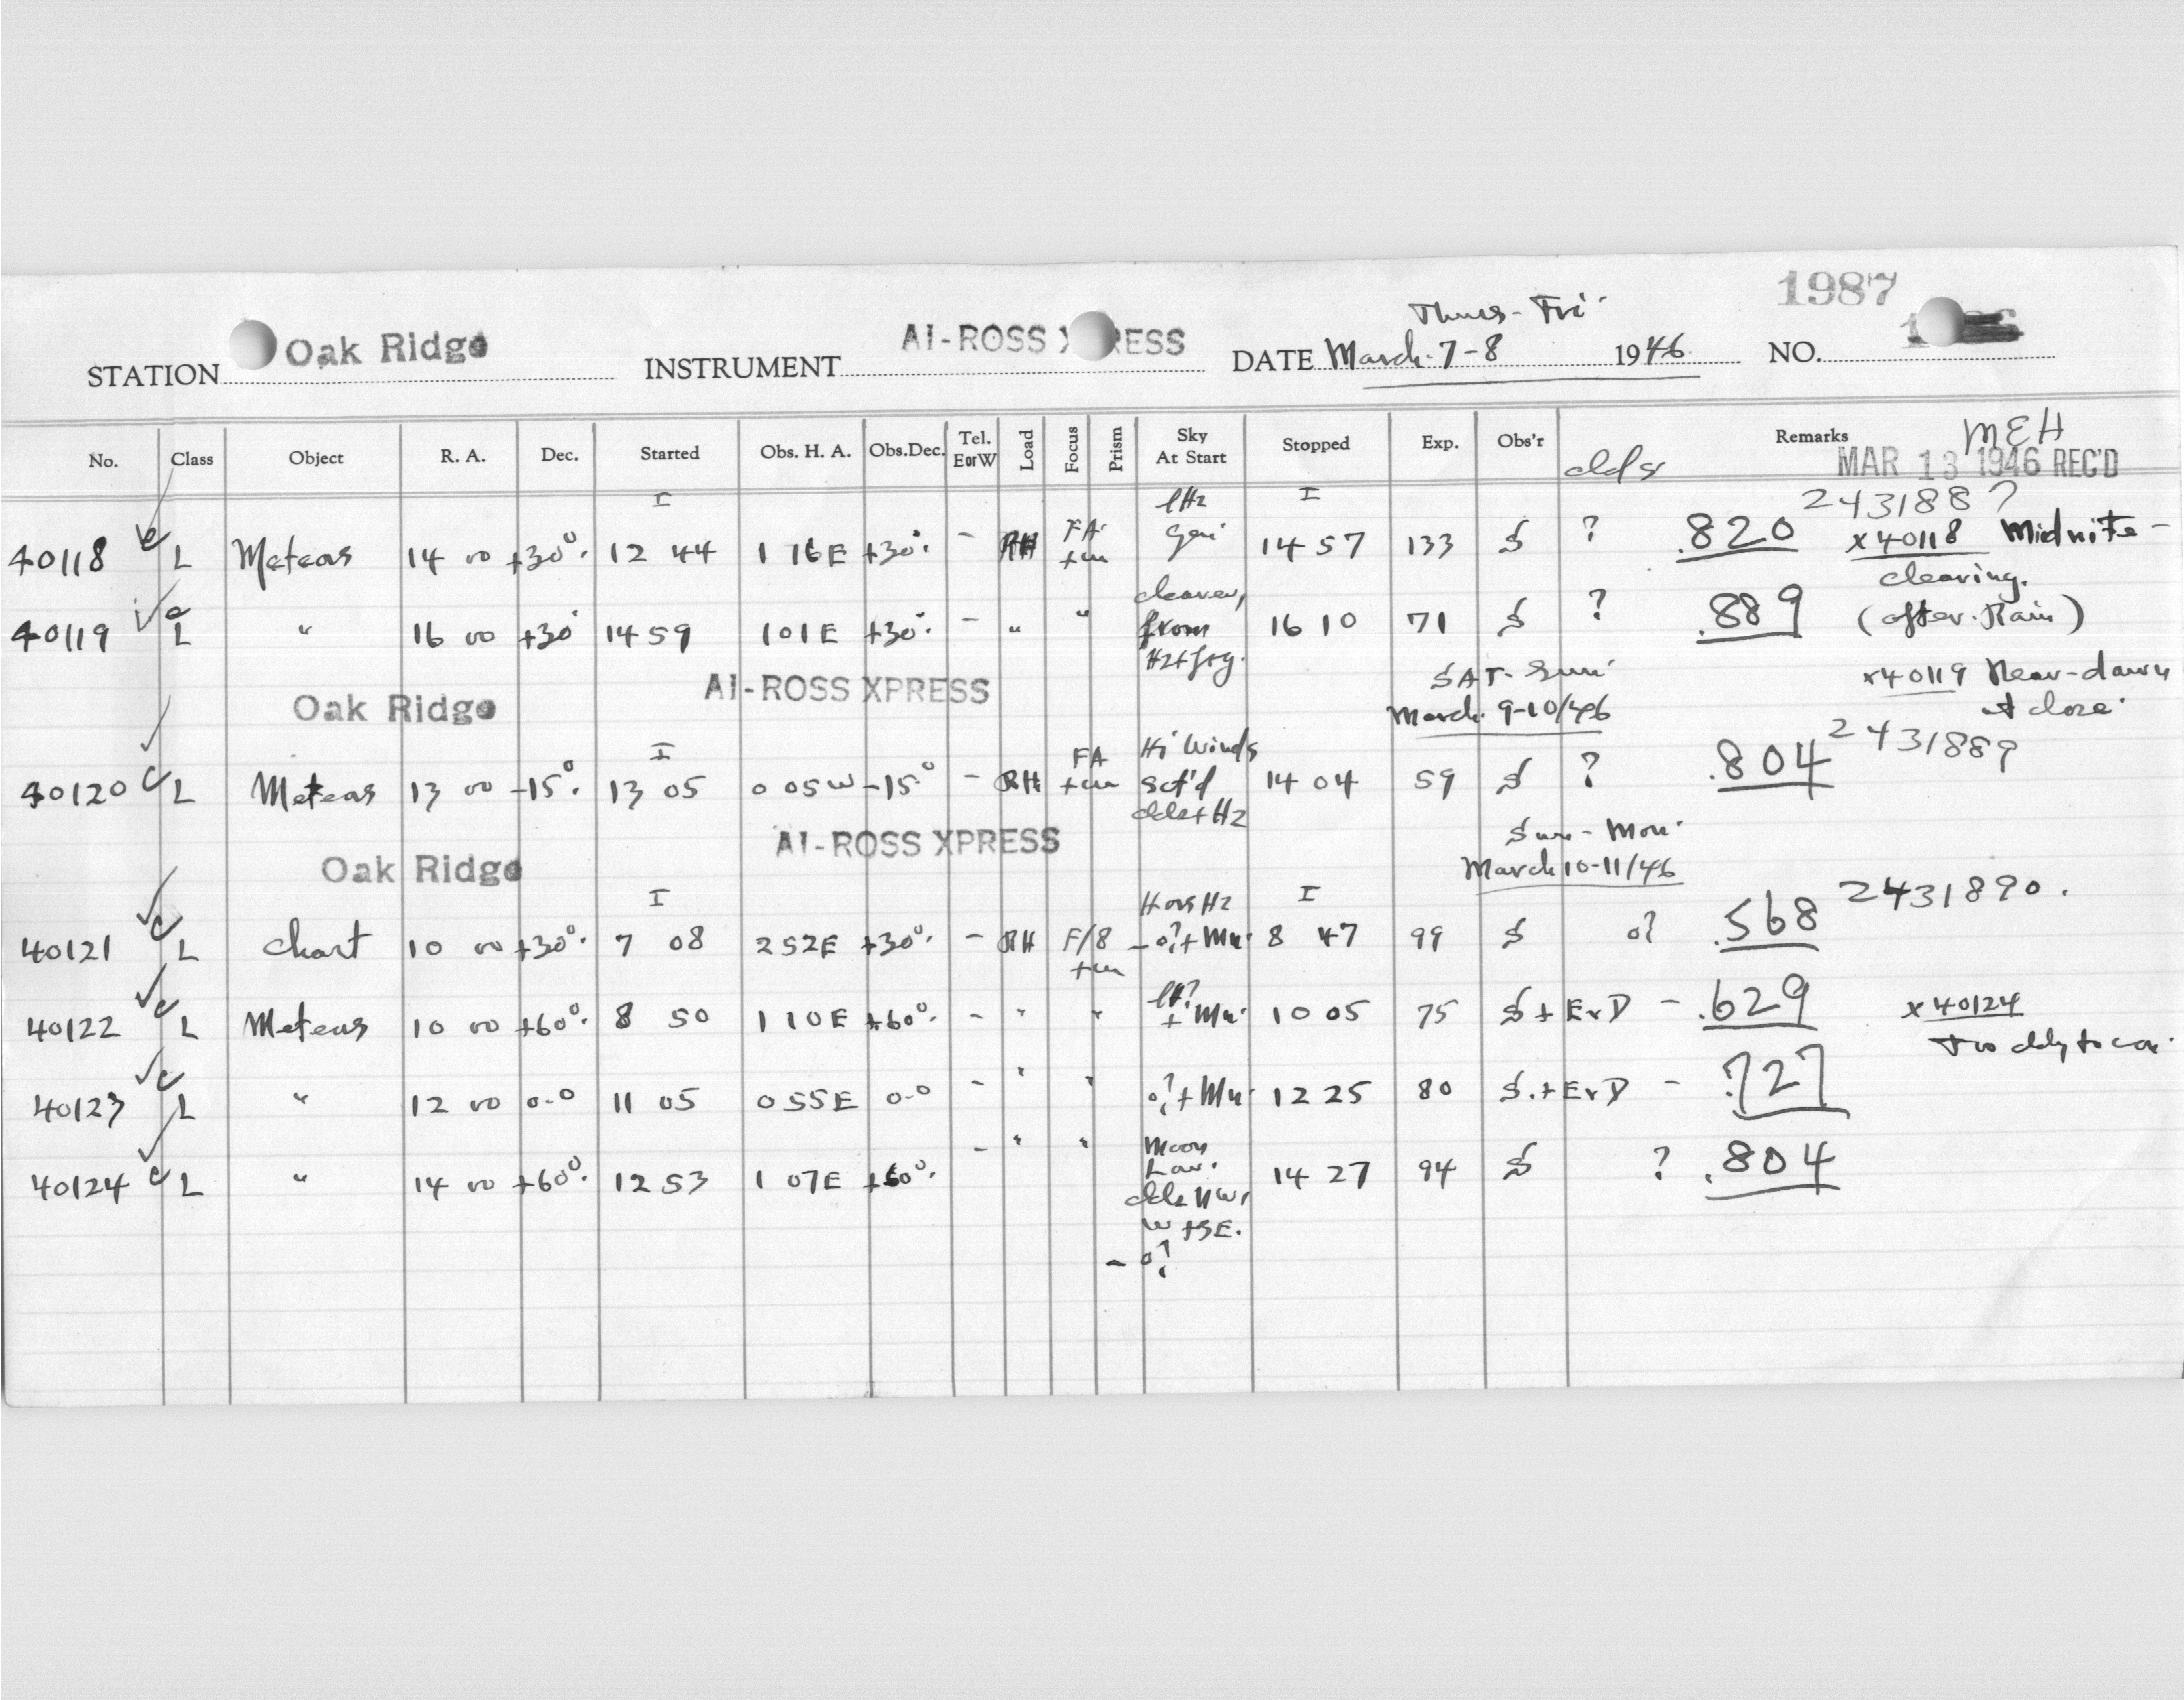 1987
Thurs - Fri
STATION Oak Ridge INSTRUMENT AI-ROSS XPRESS DATE March 7-8 1946 NO.
MEH
No. Class Object R. A. Dec. Started Obs. H. A. Obs.Dec. Tel. EorW Load Focus Prism Sky At Start Stopped Exp. Obs'r clds Remarks
MAR 13 1946 REC'D
I I 243188?
40118 c L Meteors 14 00 +30°. 12 44 1 16 E +30°. - RH FA +cm 14 57 133 S ? .820 x40118 Midnite -
clearing.
40119 c L " 16 00 +30° 14 59 1 01 E +30°. - " " from 16 10 71 S ? .889 (after Rain)
Oak Ridge AI-ROSS XPRESS SAT - Sun x40119 Near-dawn
March 9-10/46 at close.
I 2431889
40120 c L Meteors 13 00 -15°. 13 05 0 05 W -15° - RH FA +cm Hi Winds Sct'd clds + Hz 14 04 59 S ? .804
Oak Ridge AI-ROSS XPRESS Sun - Mon
March 10-11/46
I I 2431890.
40121 c L Chart 10 00 +30°. 7 08 2 52 E +30°. - RH F/8 +cm - o? + Mn. 8 47 99 S o? .568
40122 c L Meteors 10 00 +60°. 8 50 1 10 E +60°. - " " + Mn. 10 05 75 S + ExD - .629 x40124
Too cldy to con.
40123 c L " 12 00 0-0 11 05 0 55 E 0-0 - " " o? + Mn. 12 25 80 S. + ExD - .727
40124 c L " 14 00 +60°. 12 53 1 07 E +60°. - " " Moon Low. clds NW, W + SE. - o? 14 27 94 S ? .804